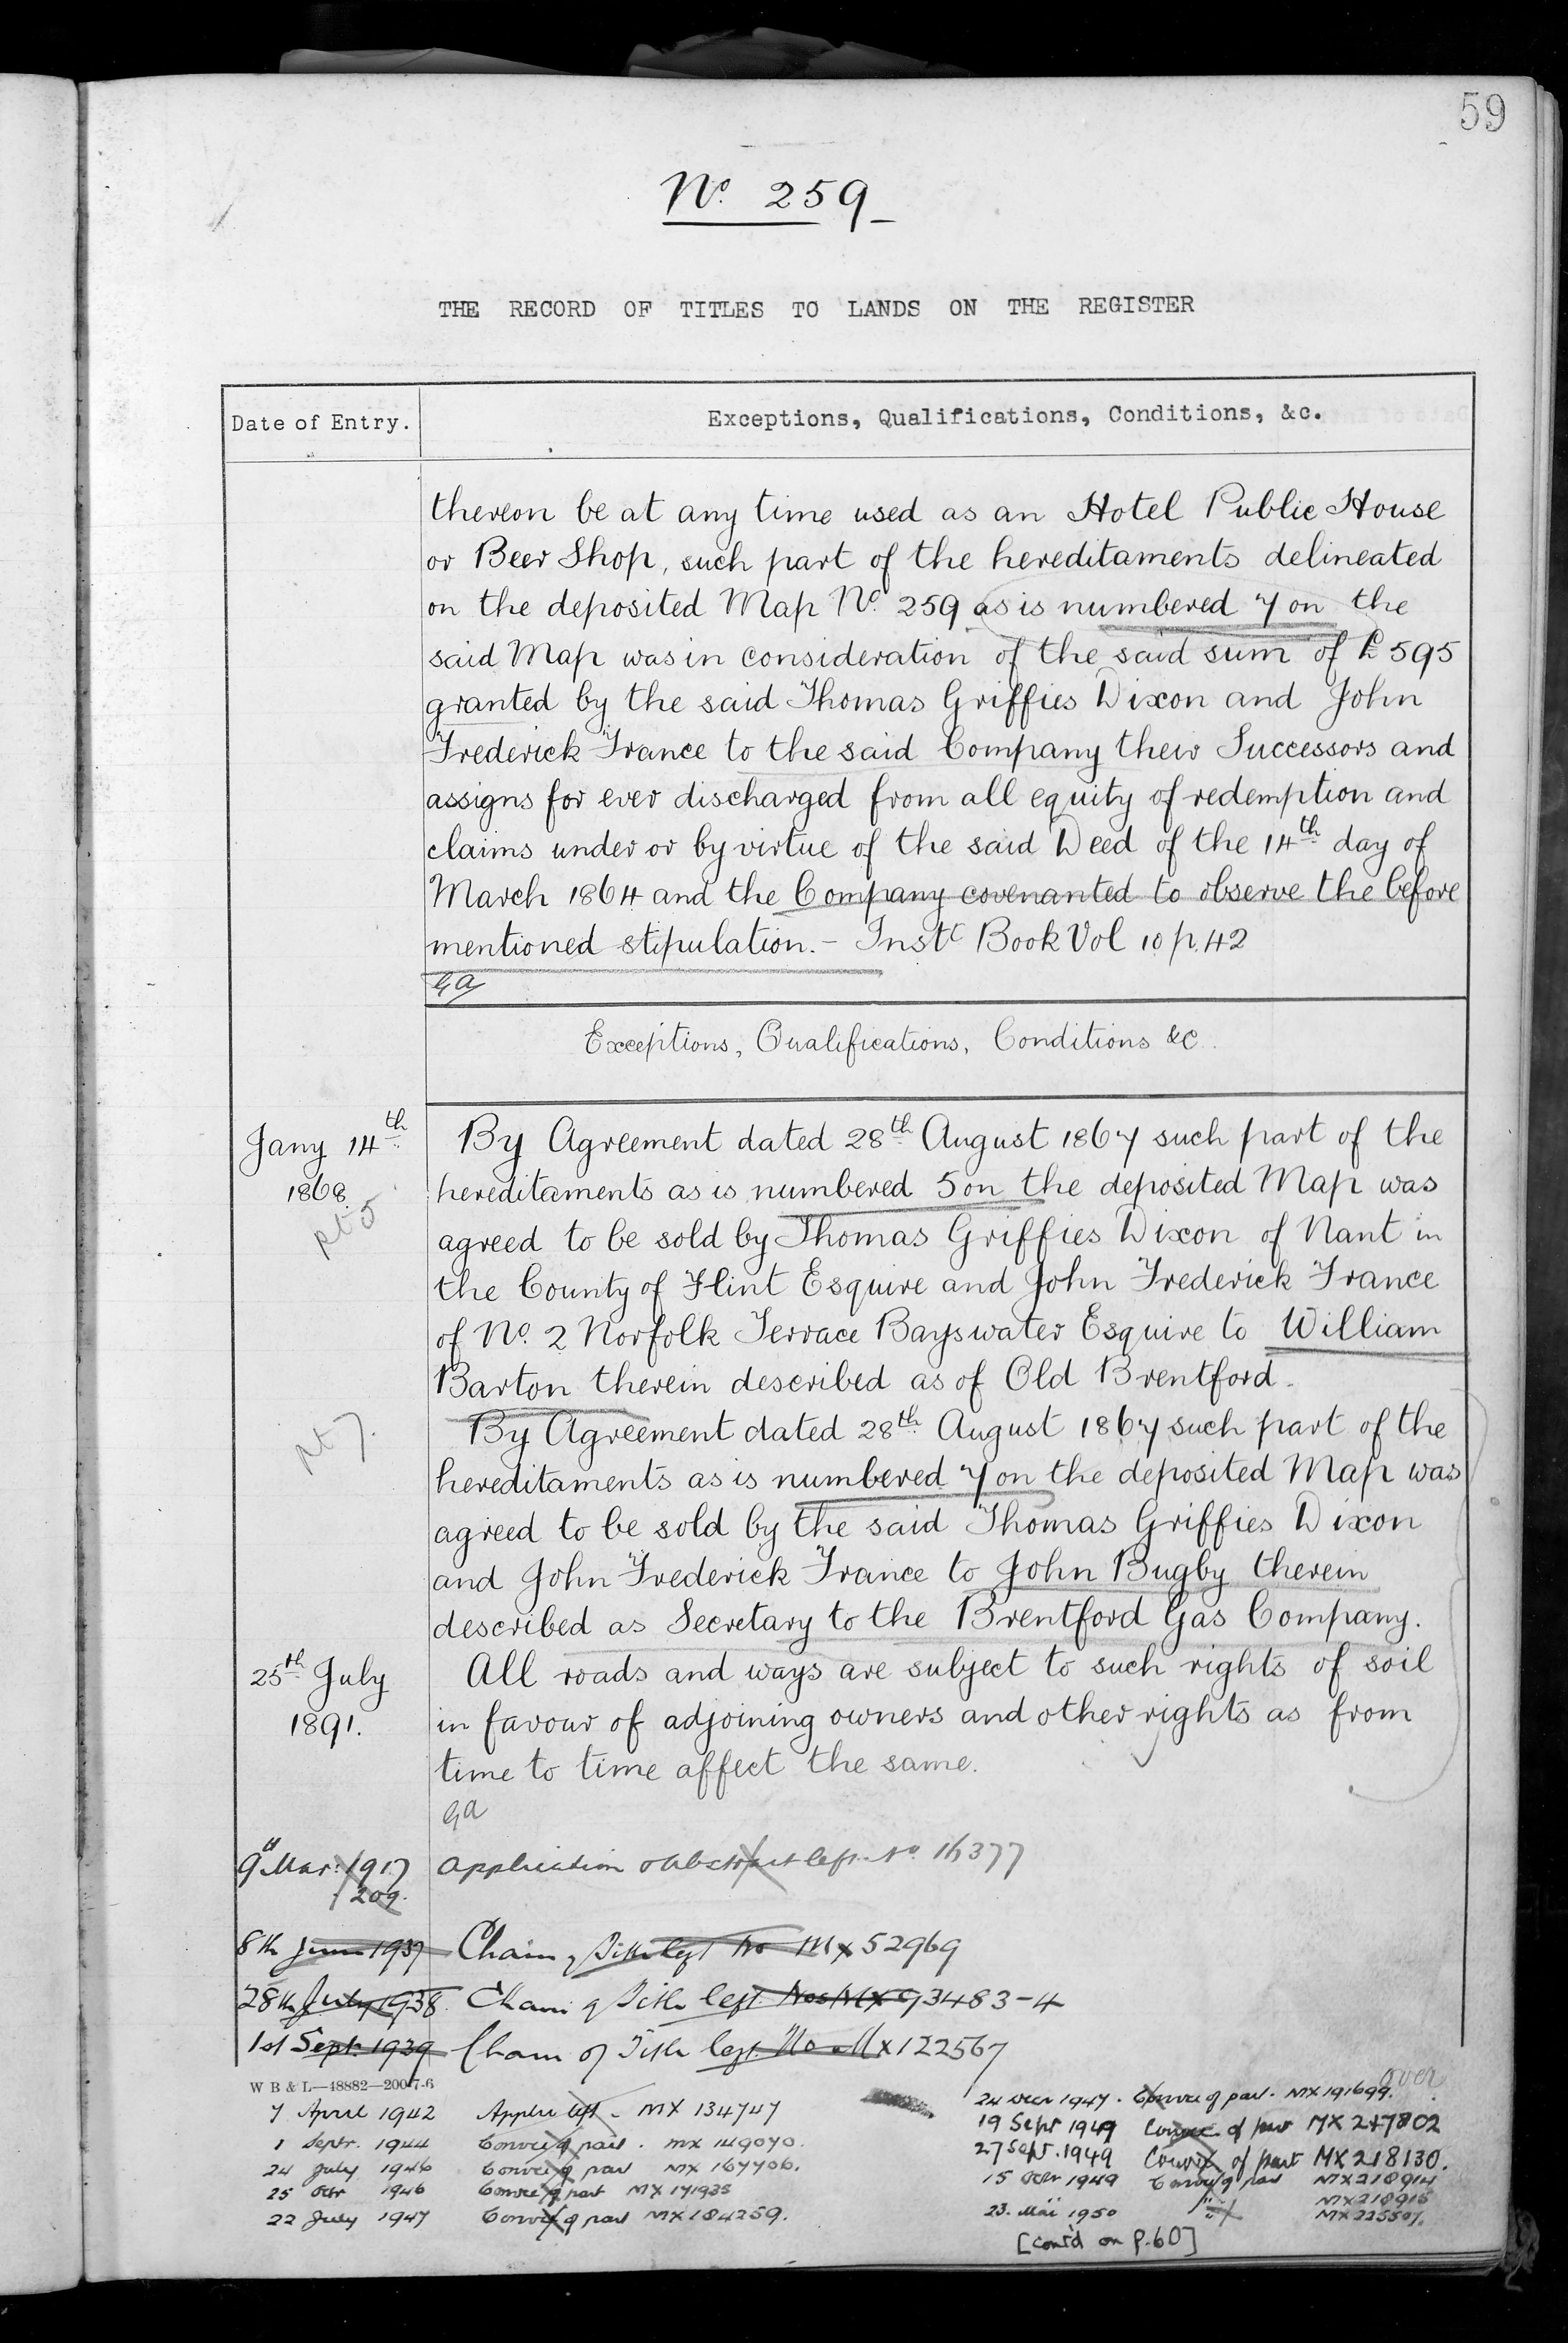 59
No. 259
THE RECORD OF TITLES TO LANDS ON THE REGISTER
Date of Entry.
Exceptions, Qualifications, Conditions, &c.
thereon be at any time used as an Hotel Public House
or Beer Shop, such part of the hereditaments delineated
on the deposited Map No. 259 as is numbered 7 on the
said Map was in consideration of the said sum of £595
granted by the said Thomas Griffies Dixon and John
Frederick France to the said Company their Successors and
assigns for ever discharged from all equity of redemption and
claims under or by virtue of the said Deed of the 14th day of
March 1864 and the Company covenanted to observe the before
mentioned stipulation. - Instt Book Vol 10 p. 42
GA
Exceptions, Qualifications, Conditions &c.
Jany 14th
1868
pt 5
By Agreement dated 28th August 1867 such part of the
hereditaments as is numbered 5 on the deposited Map was
agreed to be sold by Thomas Griffies Dixon of Nant in
the County of Flint Esquire and John Frederick France
of No. 2 Norfolk Terrace Bayswater Esquire to William
Barton therein described as of Old Brentford.
pt 7.
By Agreement dated 28th August 1867 such part of the
hereditaments as is numbered 7 on the deposited Map was
agreed to be sold by the said Thomas Griffies Dixon
and John Frederick France to John Bugby therein
described as Secretary to the Brentford Gas Company.
25th July
1891.
All roads and ways are subject to such rights of soil
in favour of adjoining owners and other rights as from
time to time affect the same.
GA
9th Mar: 1917 Application & Abstract left No. 16377
209.
8th June 1937 Chain of Title left No MX 52969
28th July 1938. Chain of Title left Nos MX 93483-4
1st Sept. 1939 Chain of Title left No MX 122567
W B & L—48882—200-7-6
over
7 April 1942 Appln left - MX 134747
1 Septr. 1944 Convce of part. MX 149070.
24 July 1946 Convce of part MX 167706.
25 Octr 1946 Convce of part MX 171935
22 July 1947 Convce of part MX 184259.
24 Decr 1947. Convce of part. MX 191699.
19 Sept 1949 Convce of part MX 217802
27 Sept. 1949 Convce of part MX 218130.
15 Octr 1949 Convce of part MX 218914
MX 218915
23. Mai 1950 " " MX 225507.
[cont'd on p.60]